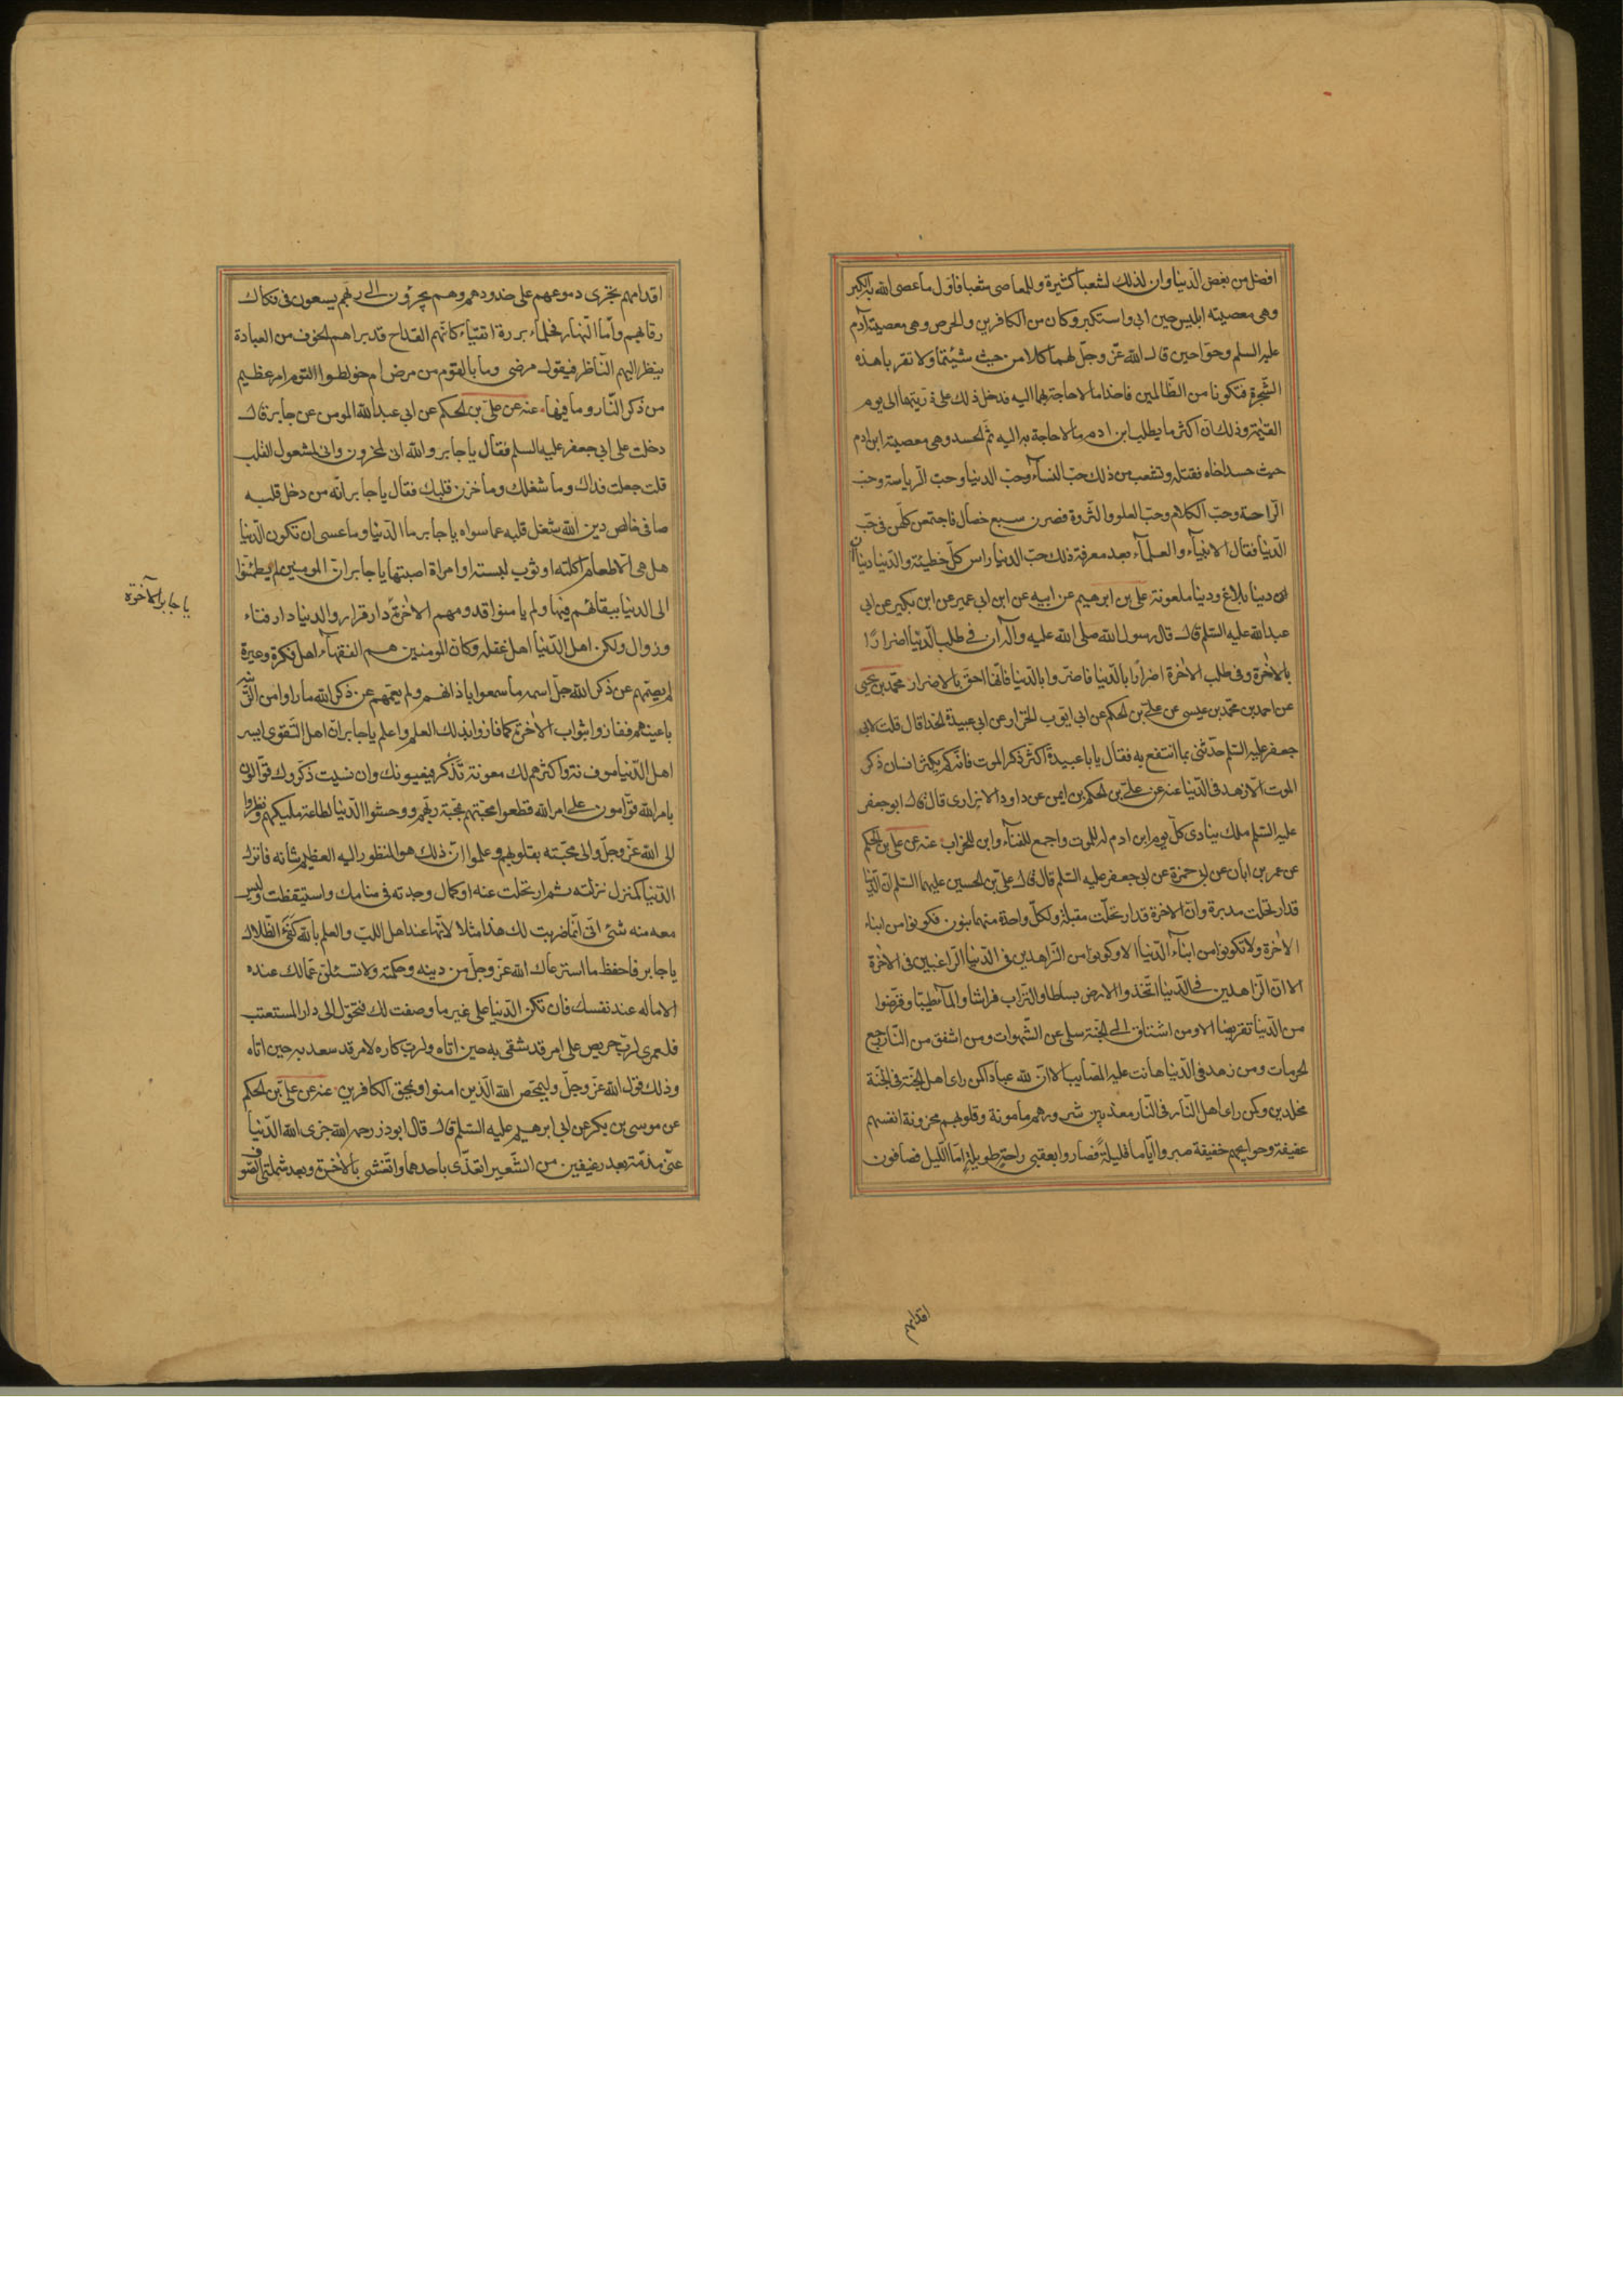 افضل من بغض الدّنيا وان لذلك لشعبا كثيرة وللمعاصى شعبا فاوّل ما عصى الله به الكبر
وهى معصيته ابليس حين ابى واستكبر وكان من الكافرين والحرص وهى معصيته آدم
عليه السلم وحوّا حين قال الله عزّ وجلّ لهما كلا من حيث شئتما ولا تقربا هذه
الشّجرة فتكونا من الظّالمين فاخذا ما لا حاجة بهما اليه فدخل ذلك على ذرّيتهما الى يوم
القيٰمة وذلك انّ اكثر ما يطلب ابن ادم ما لا حاجة به اليه ثمّ الحسد وهى معصيته ابن ادم
حيث حسد اخاه فقتله وتشعب من ذلك حبّ النسآء وحبّ الدنيا وحبّ الرّياسة وحبّ
الرّاحة وحبّ الكلام وحبّ العلو والثّروة فصرن سبع خصال فاجتمعن كلّهن فى حبّ
الدّنيا فقال الانبيآء والعلمآء بعد معرفة ذلك حبّ الدنيا راس كلّ خطيئة والدّنيا دنياآن
دنيا بلاغ ودنيا ملعونة علىّ بن ابرهيم عن ابيه عن ابن ابى عمير عن ابن بكير عن ابى
عبد الله عليه السّلم قال قال رسول الله صلى الله عليه وآله ان فى طلب الدّنيا اضرارًا
بالاخرة وفى طلب الاخرة اضرارًا بالدّنيا فاضروا بالدّنيا فانّها احق بالاضرار محمّد بن يحيى
عن احمد بن محمّد بن عيسى عن علىّ بن الحكم عن ابى ايّوب الخزّاز عن ابى عبيدة الحذا قال قلت لابى
جعفر عليه السّلم حدّثنى بما انتفع به فقال يا با عبيدة اكثر ذكر الموت فانّه لم يكثر انسان ذكر
الموت الّا زهد فى الدّنيا عنه عن علىّ بن الحكم بن ايمن عن داود الابزارى قال قال ابو جعفر
عليه السّلم ملك ينادى كلّ يوم ابن ادم لد للموت واجمع للفنآء وابن للخراب عنه عن على بن الحكم
عن عمر بن ابان عن ابى حمزة عن ابى جعفر عليه السّلم قال قال علىّ بن الحسين عليهما السّلم انّ الدّنيا
قد ارتحلت مدبرة وانّ الاخرة قد ارتحلّت مقبلة ولكلّ واحدة منهما بنون فكونوا من ابناء
الاخرة ولا تكونوا من ابنآء الدّنيا الا وكونوا من الزّاهدين فى الدّنيا الرّاغبين فى الاخرة
الا انّ الزّاهدين فى الدّنيا اتّخذوا الارض بساطا والتّراب فراشا والمآء طيبا وقرّضوا
من الدّنيا تقريضا الا ومن اشتاق الى الجّنة سلى عن الشّهوات ومن اشفق من النّار رجع
الحرمات ومن زهد فى الدّنيا هانت عليه المصايب الا انّ لله عبادا كمن راى اهل الجّنة فى الجّنة
مخلدين وكمن راى اهل النّار فى النّار معذّبين شرورهم مامونة وقلوبهم محزونة انفسهم
عفيفة وحوايجهم خفيفة صبروا ايّاما قليلةً فصاروا بعقبى راحةٍ طويلةٍ امّا اللّيل فصافون
اقدامهم
اقدامهم تجرى دموعهم على خدودهم وهم يجئرون الى ربّهم يسعون فى فكاك
رقابهم وامّا النّهار فحلمآء بررة اتقيّاء كانّهم القداح قد براهم الخوف من العبادة
ينظر اليهم النّاظر فيقول مرضى وما بالقوم من مرض ام خولطوا القوم امر عظيم
من ذكر النّار وما فيها عنه عن علىّ بن الحكم عن ابى عبد الله المومن عن جابر قال
دخلت على ابى جعفر عليه السلم فقال يا جابر والله انى لمحزون وانى لمشغول القلب
قلت جعلت فداك وما شغلك وما حزن قلبك فقال يا جابر انّه من دخل قلبه
صافى خالص دين الله شغل قلبه عما سواه يا جابر ما الدّنيا وما عسى ان تكون الدّنيا
هل هى الّا طعام اكلته او ثوب لبسته او امراة اصبتها يا جابر انّ المومنين لم يطمئنّوا
الى الدنيا ببقائهم فيها ولم يامنوا قدومهم الاخرة دار قرار والدنيا دار فناء
يا جابر الآخرة
وزوال ولكن اهل الدّنيا اهل غفلة وكان المومنين هم الفقهآء اهل فكرة وعبرة
لم يصمّهم عن ذكر الله جلّ اسمه ما سمعوا باذانهم ولم يعمّهم عن ذكر الله ما راوا من الزّينة
باعينهم ففازوا بثواب الاخرة كما فازوا بذلك العلم واعلم يا جابر انّ اهل التّقوى ايسر
اهل الدّنيا مونة واكثرهم لك معونة تذكر فيعينونك وان نسيت ذكّروك قوّالون
بامر الله قوّامون على امر الله قطعوا محبّتهم بمحّبة ربّهم ووحشوا الدّنيا لطاعة مليكهم ونظروا
الى الله عزّ وجلّ والى محبّته بقلوبهم وعلموا انّ ذلك هو المنظور اليه العظيم شانه فانزل
الدّنيا كمنزل نزلته ثم ارتحلت عنه او كمال وجدته فى منامك واستيقظت وليس
معه منه شئ انّى انّما ضربت لك هذا مثلا لانّها عند اهل اللبّ والعلم بالله كفئ الظّلال
يا جابر فاحفظ ما استرعاك الله عزّ وجلّ من دينه وحكمته ولا تسئلنّ عمّا لك عنده
الا ما له عند نفسك فان تكن الدّنيا على غير ما وصفت لك فتحوّل الى دار المستعتب
فلعمرى لربّ حريص على امر قد شقى به حين اتاه ولربّ كاره لامر قد سعد به حين اتاه
وذلك قول الله عزّ وجلّ وليمحّص الله الّذين امنوا ويمحق الكافرين عنه عن علىّ بن الحكم
عن موسى بن بكر عن ابى ابرهيم عليه السّلم قال قال ابو ذر رحمه الله جزى الله الدّنيا
عنّى مذمّة بعد رغيفين من الشّعير اتغذّى باحدهما واتّعشى بالاخر وبعد شملتى الصّوف